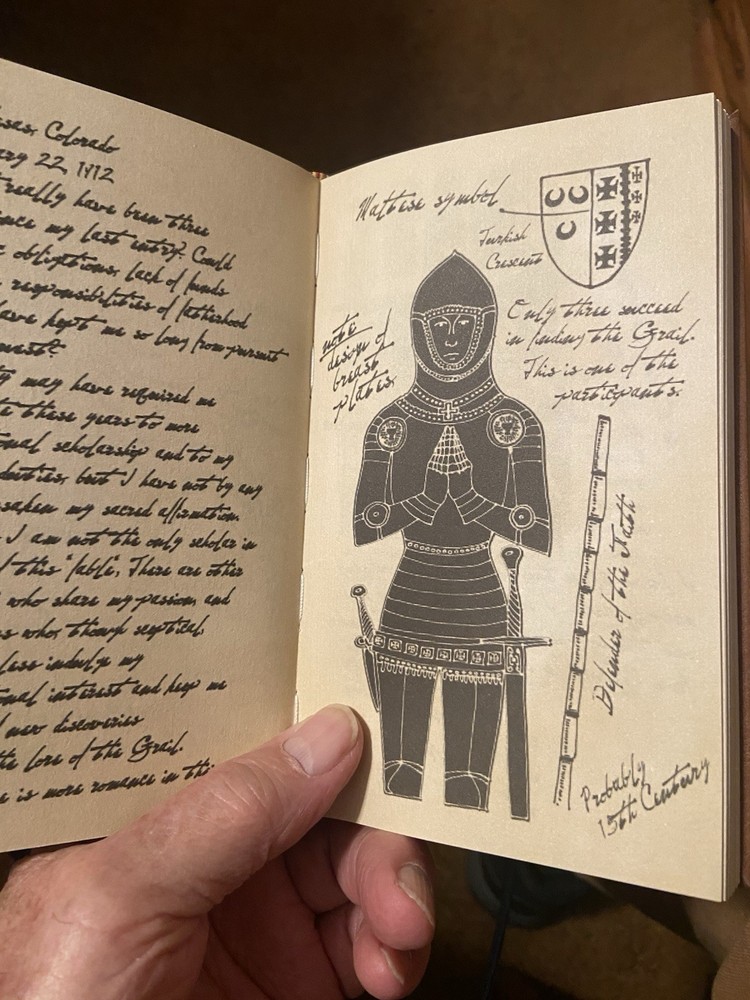 Colorado
22, 1912
really have been three
since my last entry? Could
obligations, lack of funds
responsibilities of fatherhood
have kept me so long from pursuit
quest?
may have required me
these years to more
scholarship and to my
duties, but I have not by any
my sacred affirmation.
I am not the only scholar in
this "fable". There are other
who share my passion, and
who, though sceptical,
indulge my
interest and keep me
new discoveries
the lore of the Grail.
is more romance in this
Maltese symbol
Turkish
Crescent
note
design of
breast
plates.
Only three succeed
in finding the Grail.
This is one of the
participants.
Defender of the Faith
Probably
15th Century